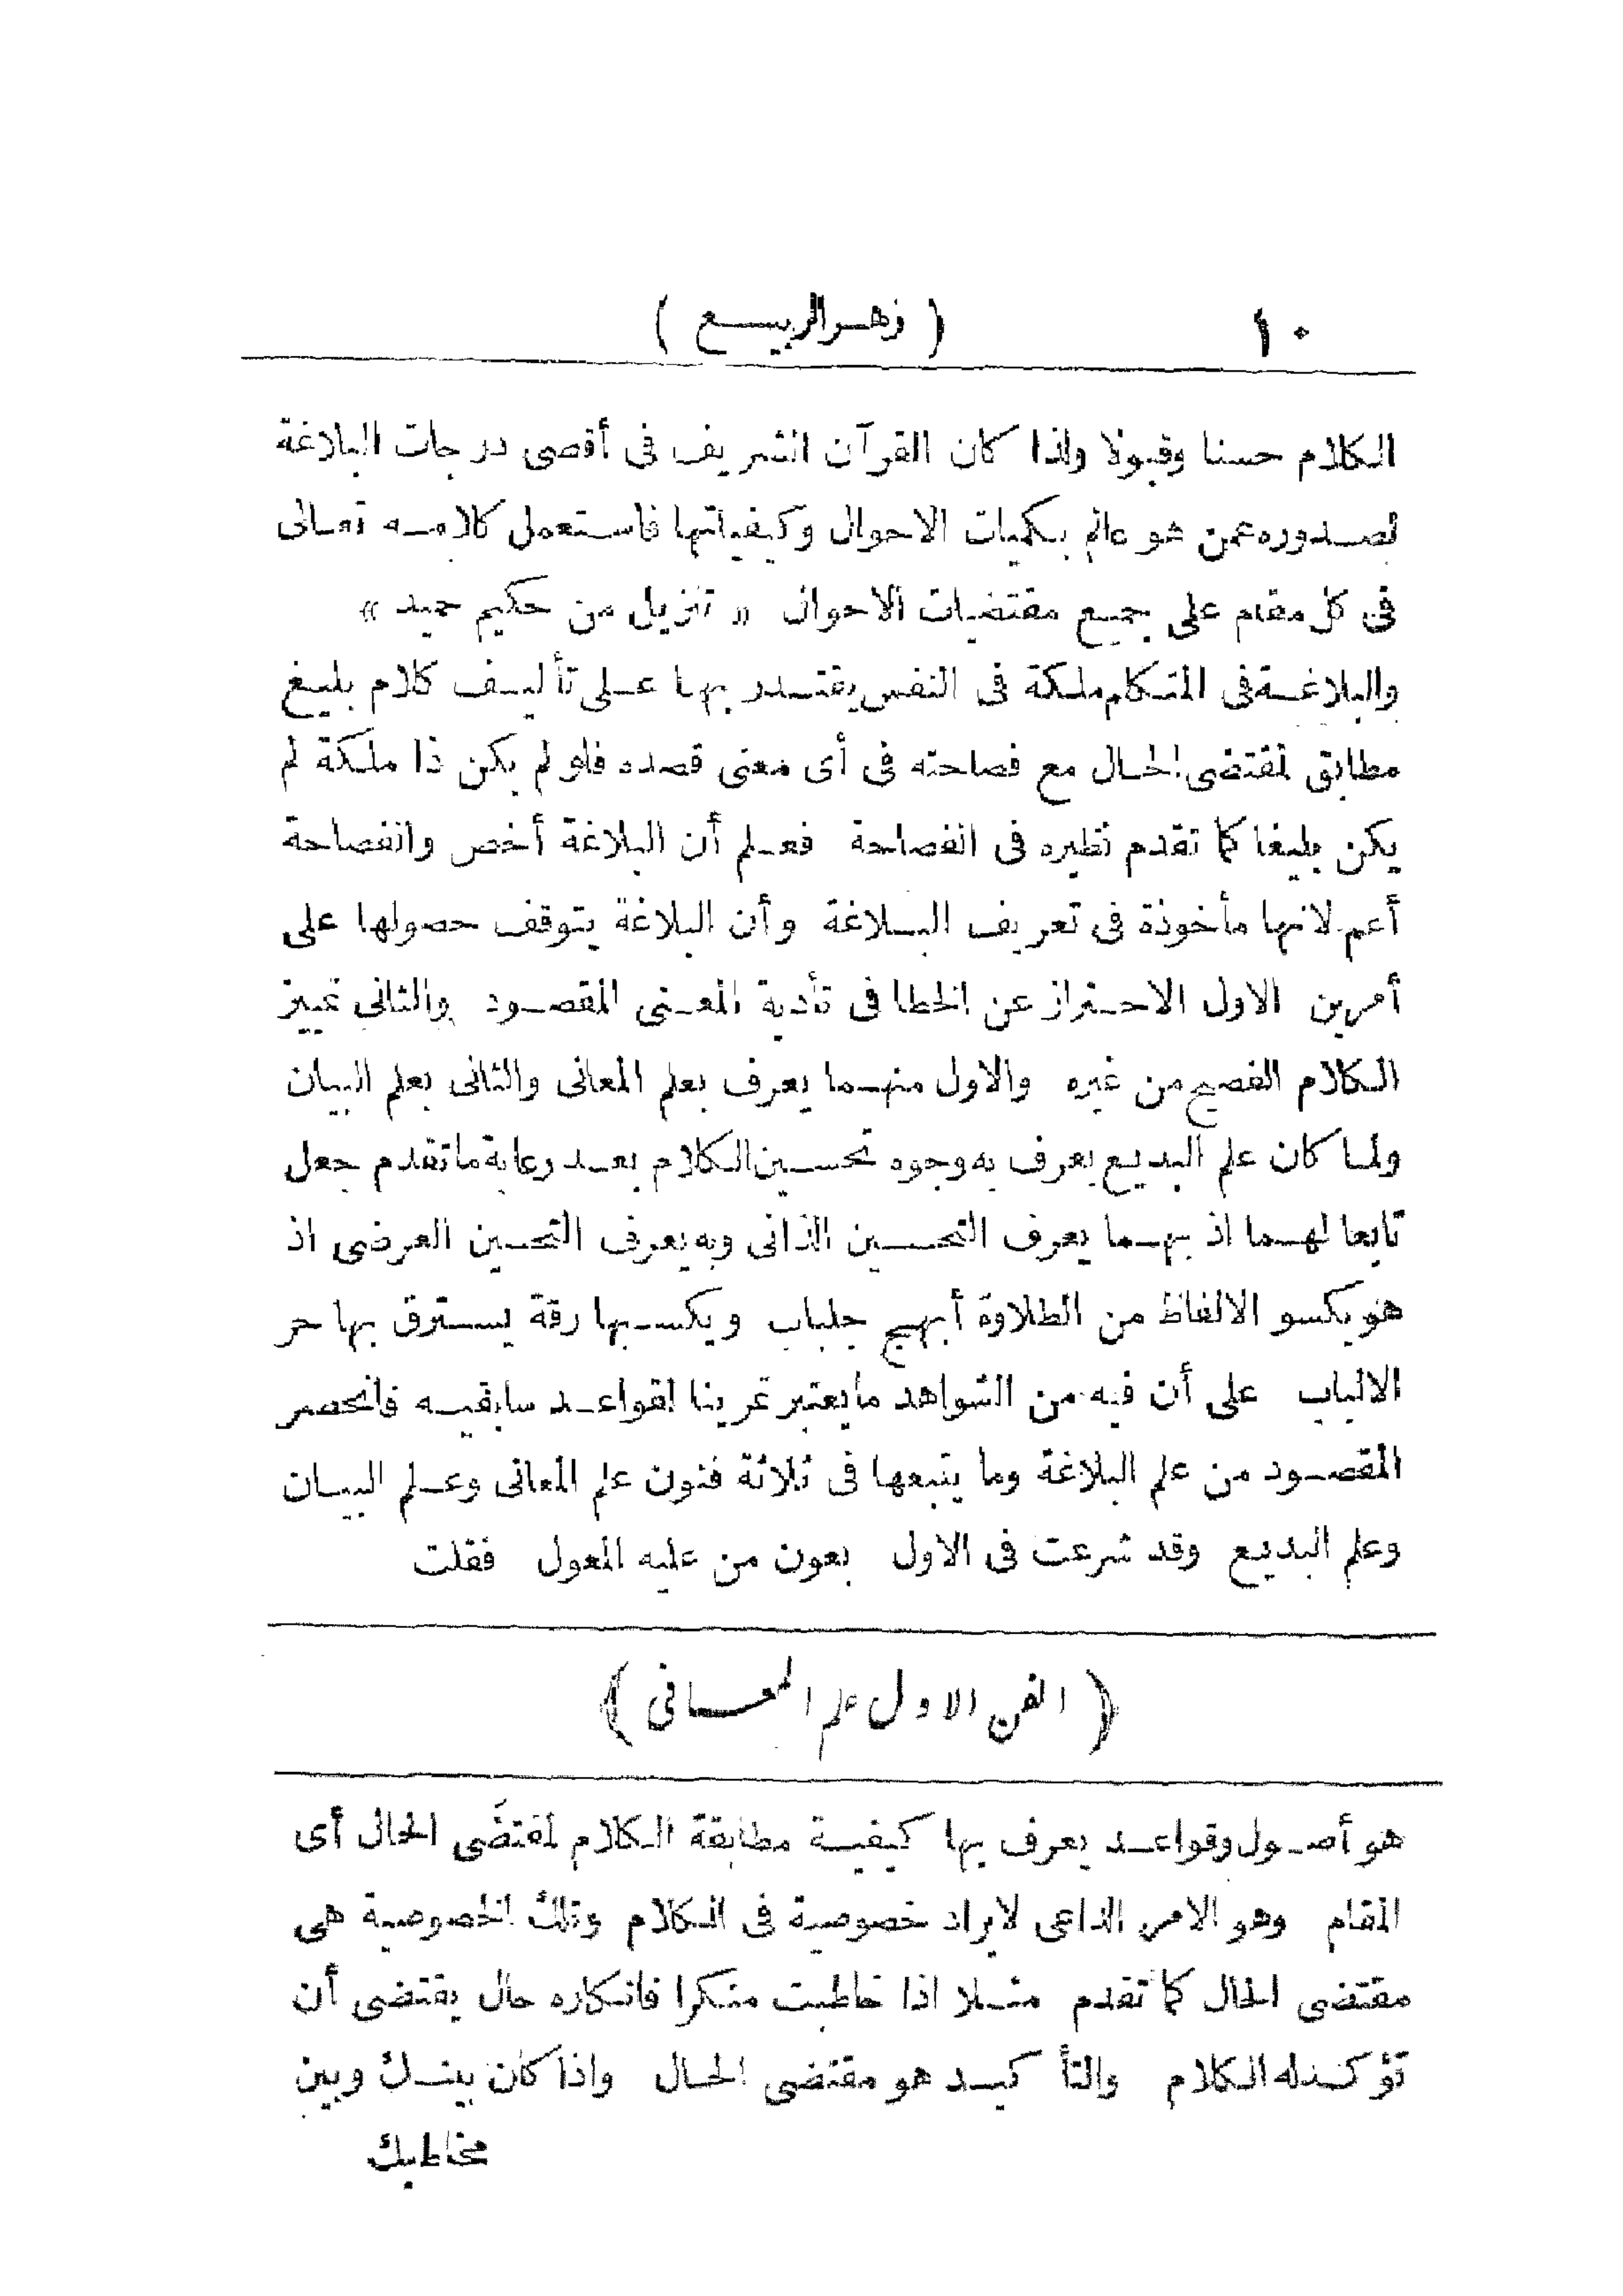 ١٠ ( زهر الربيع )
الكلام حسنا وقبولا ولذا كان القرآن الشريف فى أقصى درجات البلاغة
لصدوره عمن هو عالم بكميات الاحوال وكيفياتها فاستعمل كلامه تعالى
فى كل مقام على جميع مقتضيات الاحوال « تنزيل من حكيم حميد »
والبلاغة فى المتكلم ملكة فى النفس يقتدر بها على تأليف كلام بليغ
مطابق لمقتضى الحال مع فصاحته فى أى معنى قصده فلو لم يكن ذا ملكة لم
يكن بليغا كما تقدم نظيره فى الفصاحة فعلم أن البلاغة أخص والفصاحة
أعم لانها مأخوذة فى تعريف البلاغة وأن البلاغة يتوقف حصولها على
أمرين الاول الاحتراز عن الخطا فى تأدية المعنى المقصود والثانى تمييز
الكلام الفصيح من غيره والاول منهما يعرف بعلم المعانى والثانى بعلم البيان
ولما كان علم البديع يعرف به وجوه تحسين الكلام بعد رعاية ما تقدم جعل
تابعا لهما اذ بهما يعرف التحسين الذاتى وبه يعرف التحسين العرضى اذ
هو يكسو الالفاظ من الطلاوة أبهج جلباب ويكسبها رقة يسترق بها حر
الالباب على أن فيه من الشواهد ما يعتبر تمرينا لقواعد سابقيه فانحصر
المقصود من علم البلاغة وما يتبعها فى ثلاثة فنون علم المعانى وعلم البيان
وعلم البديع وقد شرعت فى الاول بعون من عليه المعول فقلت
( الفن الاول علم المعانى )
هو أصول وقواعد يعرف بها كيفية مطابقة الكلام لمقتضَى الحال أى
المقام وهو الامر الداعى لايراد خصوصية فى الكلام وتلك الخصوصية هى
مقتضى الحال كما تقدم مثلا اذا خاطبت منكرا فانكاره حال يقتضى أن
تؤكد له الكلام والتأكيد هو مقتضى الحال واذا كان بينك وبين
مخاطبك